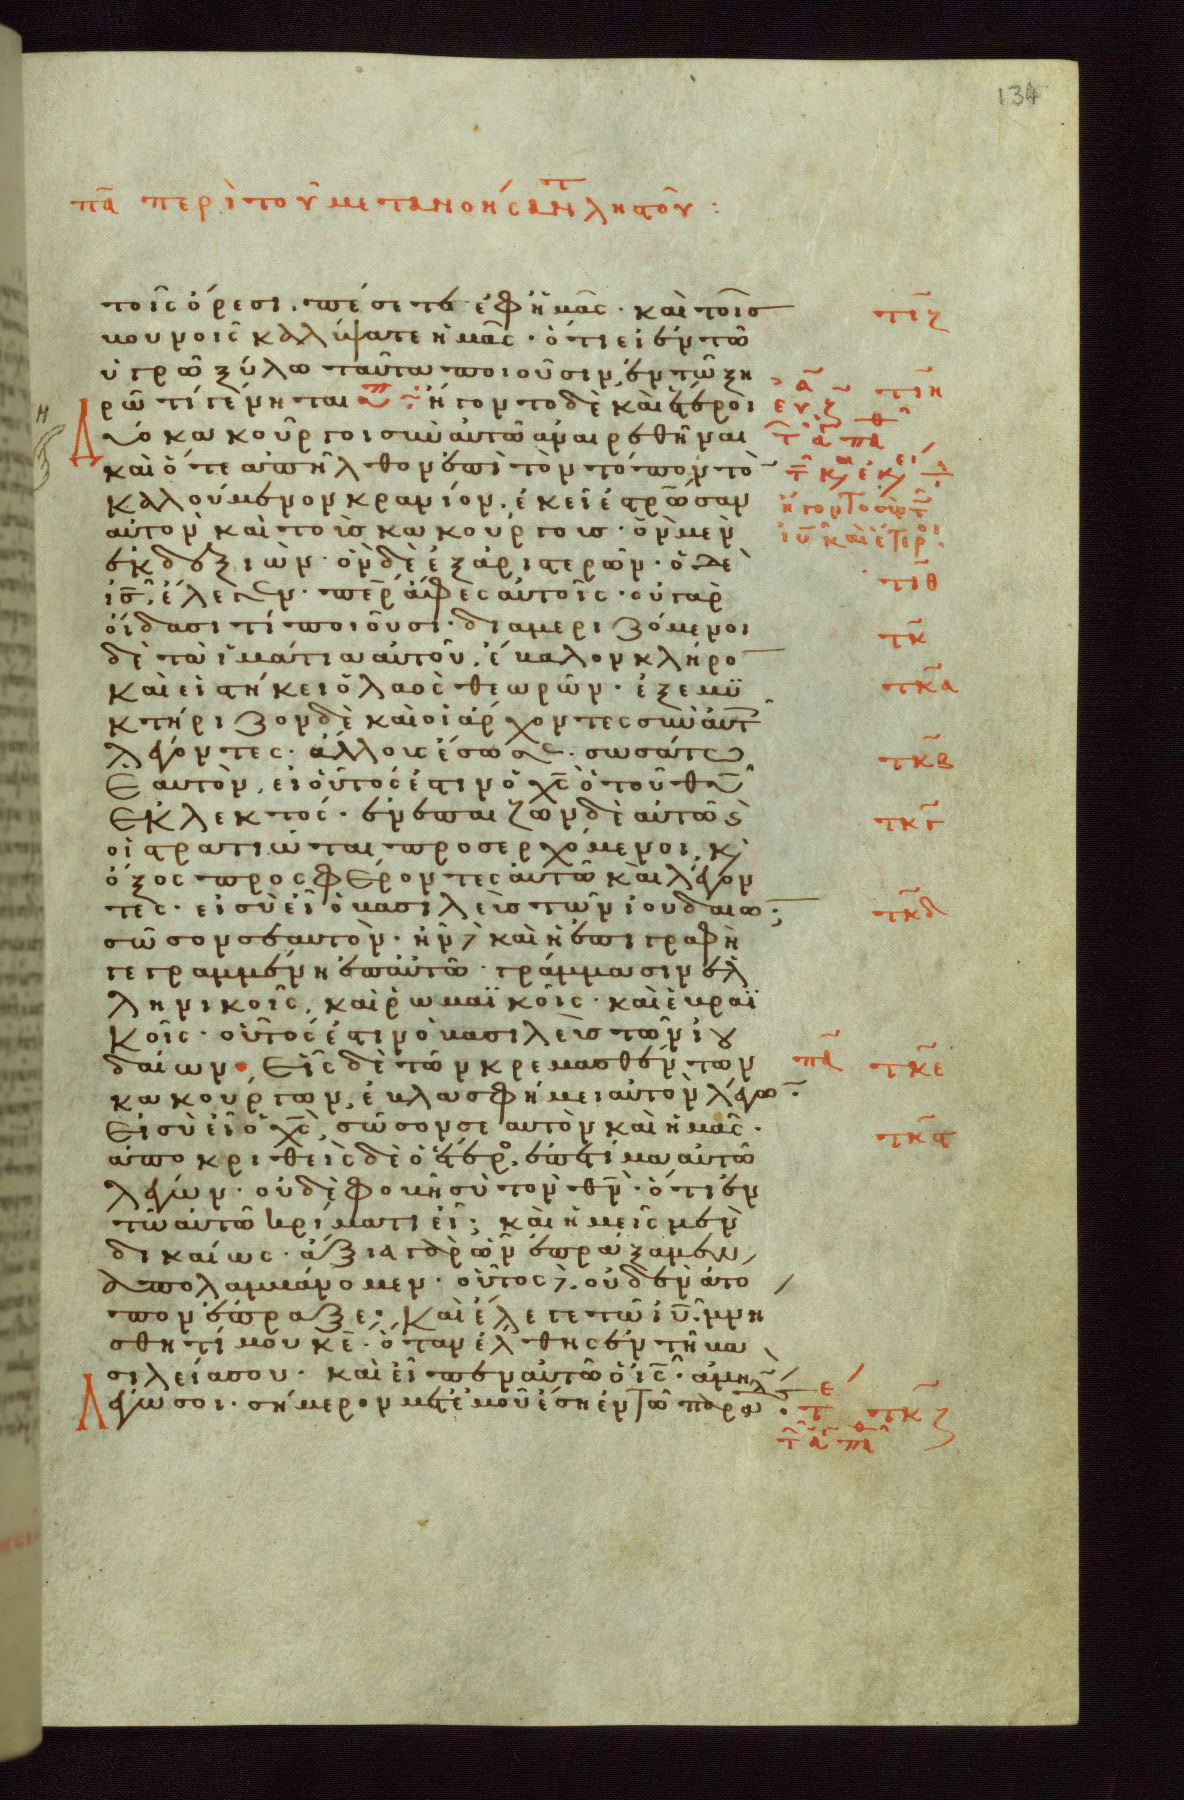 134
πα̅ περὶ τοῦ μετανοήσαντ ληστοῦ :
τοῖς ὄρεσι. πέσετε ἐφ ἡμᾶς. καὶ τοῖς
βουνοῖς καλύψατε ἡμᾶς. ὅτι εἰ ἐν τῶ
ὑγρῶ ξύλω ταῦτα ποιοῦσιν, ἐν τῶ ξη
ρῶ τί γένηται ἤγοντο δὲ καὶ ἕτεροι
δύο κακοῦργοι σὺν αὐτῶ ἀναιρεθῆναι
καὶ ὅτε ἀπῆλθον ἐπὶ τὸν τόπον τὸ
καλούμενον κρανίον. ἐκεῖ ἐστρωσαν
αὐτὸν καὶ τοὺς κακούργους. ὃν μὲν
ἐκ δεξιῶν. ὃν δὲ ἐξ ἀριστερῶν. ὁ δὲ
ις̅ ἔλεγεν. περ ἄφες αὐτοῖς. οὐ γὰρ
οἴδασι τί ποιοῦσι. διαμεριζόμενοι
δὲ τὰ ἱμάτια αὐτοῦ. ἔβαλον κλῆρο
καὶ εἱστήκει ὁ λαὸς θεωρῶν. ἐξεμυ
κτήριζον δὲ καὶ οἱ ἄρχοντες σὺν αὐτ
λέγοντες. ἄλλους ἔσωσε. σωσάτω
ἑαυτὸν, εἰ οὗτός ἐστιν ὁ χς̅ ὁ τοῦ θυ̅
ἐκλεκτός. ἐνέπαιζον δὲ αὐτῶ ς
οἱ στρατιῶται προσερχόμενοι, κ
ὄξος προσφέροντες αὐτῶ καὶ λέγον
τες. εἰ σὺ εἶ ὁ βασιλεὺς τῶν ἰουδαίω
σῶσον σεαυτόν. ἦν δὲ καὶ ἡ ἐπιγραφὴ
γεγραμμένη ἐπ αὐτῶ. γράμμασιν ἑλ
ληνικοῖς, καὶ ῥωμαϊκοῖς. καὶ ἑβραϊ
κοῖς. οὗτός ἐστιν ὁ βασιλεὺς τῶν ἰου
δαίων. Εἷς δὲ τῶν κρεμασθέντων
κακούργων, ἐβλασφήμει αὐτὸν λέγω
εἰ σὺ εἶ ὁ χς̅, σῶσον σεαυτὸν καὶ ἡμᾶς.
ἀποκριθεὶς δὲ ὁ ἕτερ, ἐπετίμα αὐτῶ
λέγων. οὐδὲ φοβῆ σὺ τὸν θν̅. ὅτι ἐν
τῶ αὐτῶ κρίματι εἶ; καὶ ἡμεῖς μὲν
δικαίως. ἄξια γὰρ ὧν ἐπράξαμεν
ἀπολαμβάνομεν. οὗτος δὲ. οὐδὲν ἄτο
πον ἔπραξε. Καὶ ἔλεγε τῶ ιυ̅. μνή
σθητί μου κε̅. ὅταν ἔλθης ἐν τῆ βα
σιλεία σου. καὶ εἶπεν αὐτῶ ὁ ις̅. ἀμὴν
λέγω σοι. σήμερον μετ ἐμοῦ ἔση ἐν τῶ παραδ
τιζ
τιη
τιθ
τκ
τκα
τκβ
τκγ
τκδ
πα̅ τκε
τκϛ
τκζ